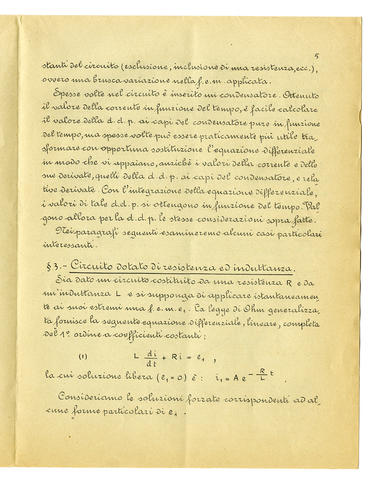 5
stanti del circuito (esclusione, inclusione di una resistenza, ecc.),
ovvero una brusca variazione nella f.e.m. applicata.
Spesse volte nel circuito è inserito un condensatore. Ottenuto
il valore della corrente in funzione del tempo, è facile calcolare
il valore della d.d.p. ai capi del condensatore pure in funzione
del tempo, ma spesse volte può essere praticamente più utile tra_
sformare con opportuna sostituzione l'equazione differenziale
in modo che vi appaiano, anzichè i valori della corrente e delle
sue derivate, quelli della d.d.p. ai capi del condensatore, e rela
tive derivate. Con l'integrazione della equazione differenziale,
i valori di tale d.d.p. si ottengono in funzione del tempo. Val
gono allora per la d.d.p. le stesse considerazioni sopra fatte.
Nei paragrafi seguenti esamineremo alcuni casi particolari
interessanti.
§ 3.- Circuito dotato di resistenza ed induttanza.
Sia dato un circuito costituito da una resistenza R e da
un'induttanza L e si supponga di applicare istantaneamen_
te ai suoi estremi una f.e.m. e₁. La legge di Ohm generalizza_
ta fornisce la seguente equazione differenziale, lineare, completa
del 1° ordine a coefficienti costanti:
(1) L di/dt + Ri = e₁ ,
la cui soluzione libera (e₁ = 0) è: i₁ = A e^(- R/L t)
Consideriamo le soluzioni forzate corrispondenti ad al_
cune forme particolari di e₁.